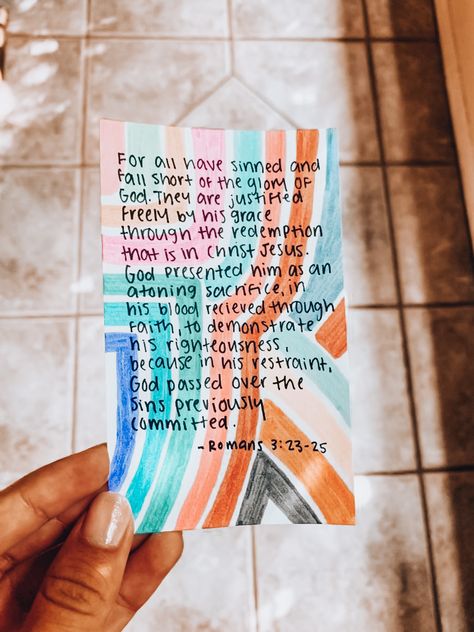 For all have sinned and
fall short of the glory of
God. They are justified
freely by his grace
through the redemption
that is in Christ Jesus.
God presented him as an
atoning sacrifice, in
his blood recieved through
faith, to demonstrate
his righteousness,
because in his restraint,
God passed over the
sins previously
committed.
- Romans 3:23-25